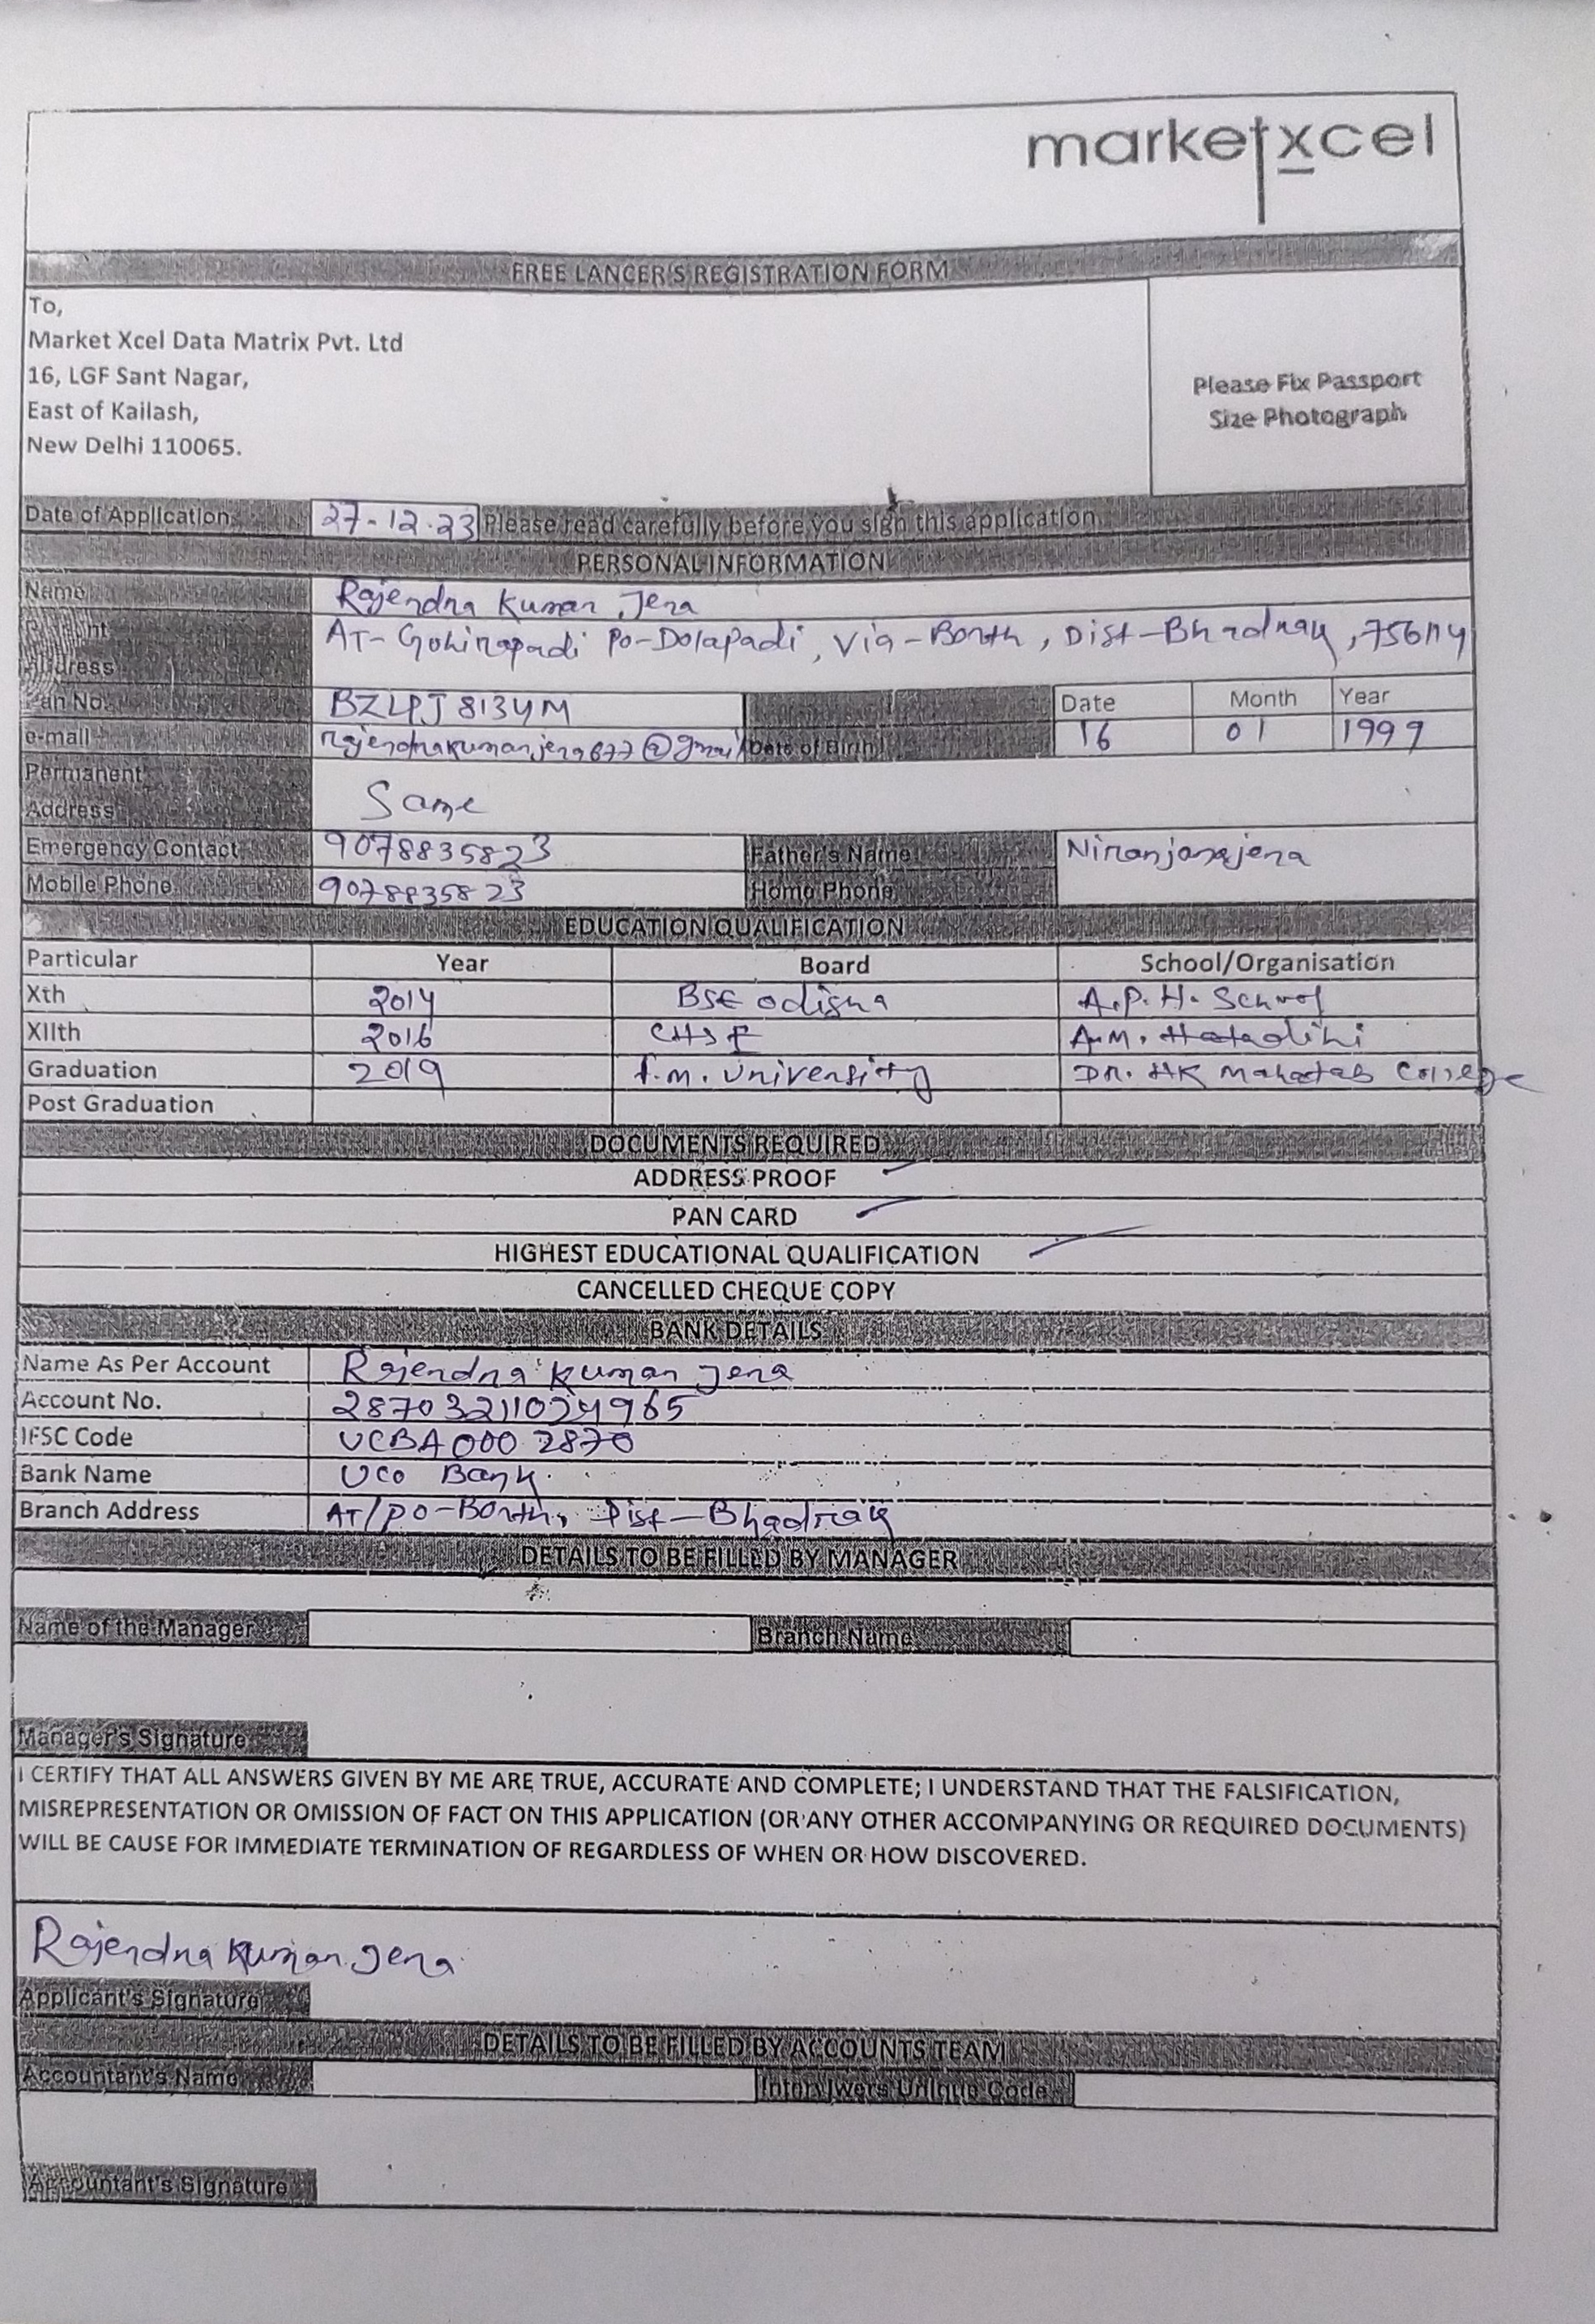 marketxcel
FREE LANCER'S REGISTRATION FORM
To,
Market Xcel Data Matrix Pvt. Ltd
16, LGF Sant Nagar,
East of Kailash,
New Delhi 110065.
Please Fix Passport
Size Photograph
Date of Application 27-12-23 Please read carefully before you sign this application
PERSONAL INFORMATION
Name Rajendra Kumar Jena
Address AT- Gohirapadi Po-Dolapadi, Via-Bonth, Dist-Bhadrak, 756114
Pan No. BZLPJ8134M Date Month Year
e-mail rajendrakumarjena677@gmail Date of Birth 16 01 1999
Permanent
Address Same
Emergency Contact 9078835823 Father's Name Niranjan jena
Mobile Phone 9078835823 Home Phone
EDUCATION QUALIFICATION
Particular Year Board School/Organisation
Xth 2014 BSE odisha A.P.H. School
XIIth 2016 CHSE A.M. Hatadihi
Graduation 2019 F.M. University DR. HK Mahatab College
Post Graduation
DOCUMENTS REQUIRED
ADDRESS PROOF
PAN CARD
HIGHEST EDUCATIONAL QUALIFICATION
CANCELLED CHEQUE COPY
BANK DETAILS
Name As Per Account Rajendra Kumar Jena
Account No.
IFSC Code UCBA0002870
Bank Name Uco Bank
Branch Address AT/PO-Bonth, Dist-Bhadrak
DETAILS TO BE FILLED BY MANAGER
Name of the Manager Branch Name
Manager's Signature
I CERTIFY THAT ALL ANSWERS GIVEN BY ME ARE TRUE, ACCURATE AND COMPLETE; I UNDERSTAND THAT THE FALSIFICATION,
MISREPRESENTATION OR OMISSION OF FACT ON THIS APPLICATION (OR ANY OTHER ACCOMPANYING OR REQUIRED DOCUMENTS)
WILL BE CAUSE FOR IMMEDIATE TERMINATION OF REGARDLESS OF WHEN OR HOW DISCOVERED.
Rajendra Kumar Jena
Applicant's Signature
DETAILS TO BE FILLED BY ACCOUNTS TEAM
Accountant's Name Interviwers Unique Code
Accountant's Signature